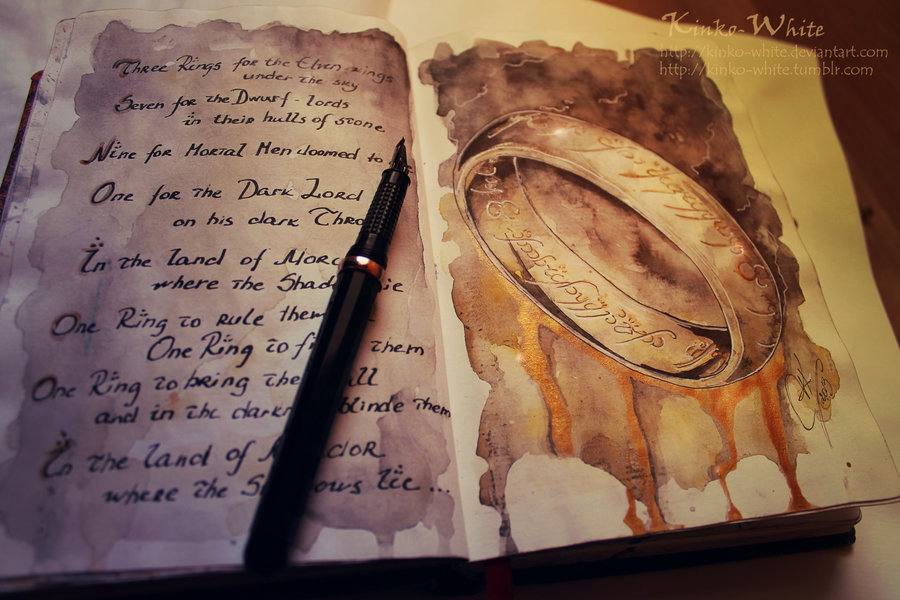 Three Rings for the Elven kings
under the sky
Seven for the Dwarf-lords
in their hulls of stone
Nine for Mortal Men doomed to
One for the Dark Lord
on his dark Thro
In the land of Mor
where the Shad ie
One Ring to rule them
One Ring to fi them
One Ring to bring the ll
and in the darkn blinde them
In the land of M rdor
where the S ows lie ...
Kinko-White
http://kinko-white.deviantart.com
http://kinko-white.tumblr.com